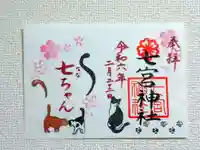 奉拝
七宮神社
令和六年
二月二十二日
なな
七ちゃん